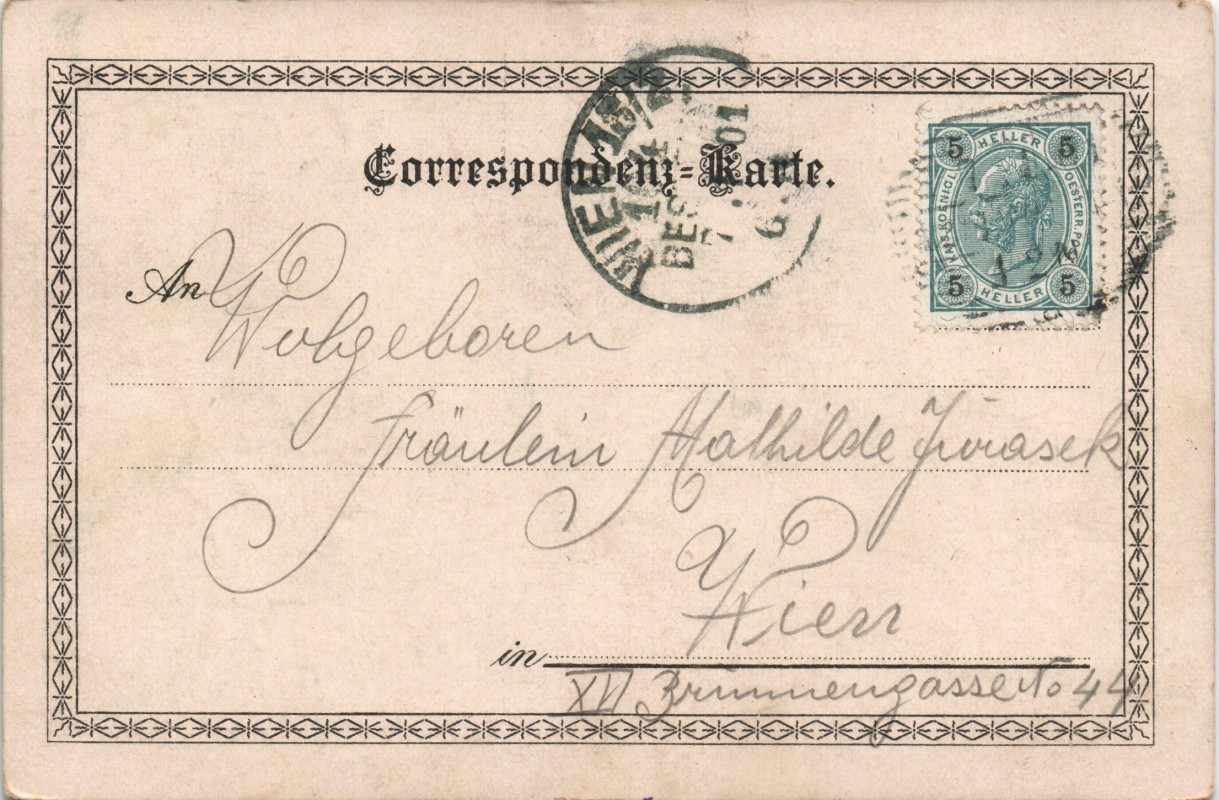 Correspondenz-Karte.
WIEN 16/2
BES
01
5 HELLER 5
KAIS. KOENIGL. OESTERR. POST
5 HELLER 5
An Wolgeboren
Fräulein Mathilde Jirasek
in Wien
XVI Brunnengasse No 44